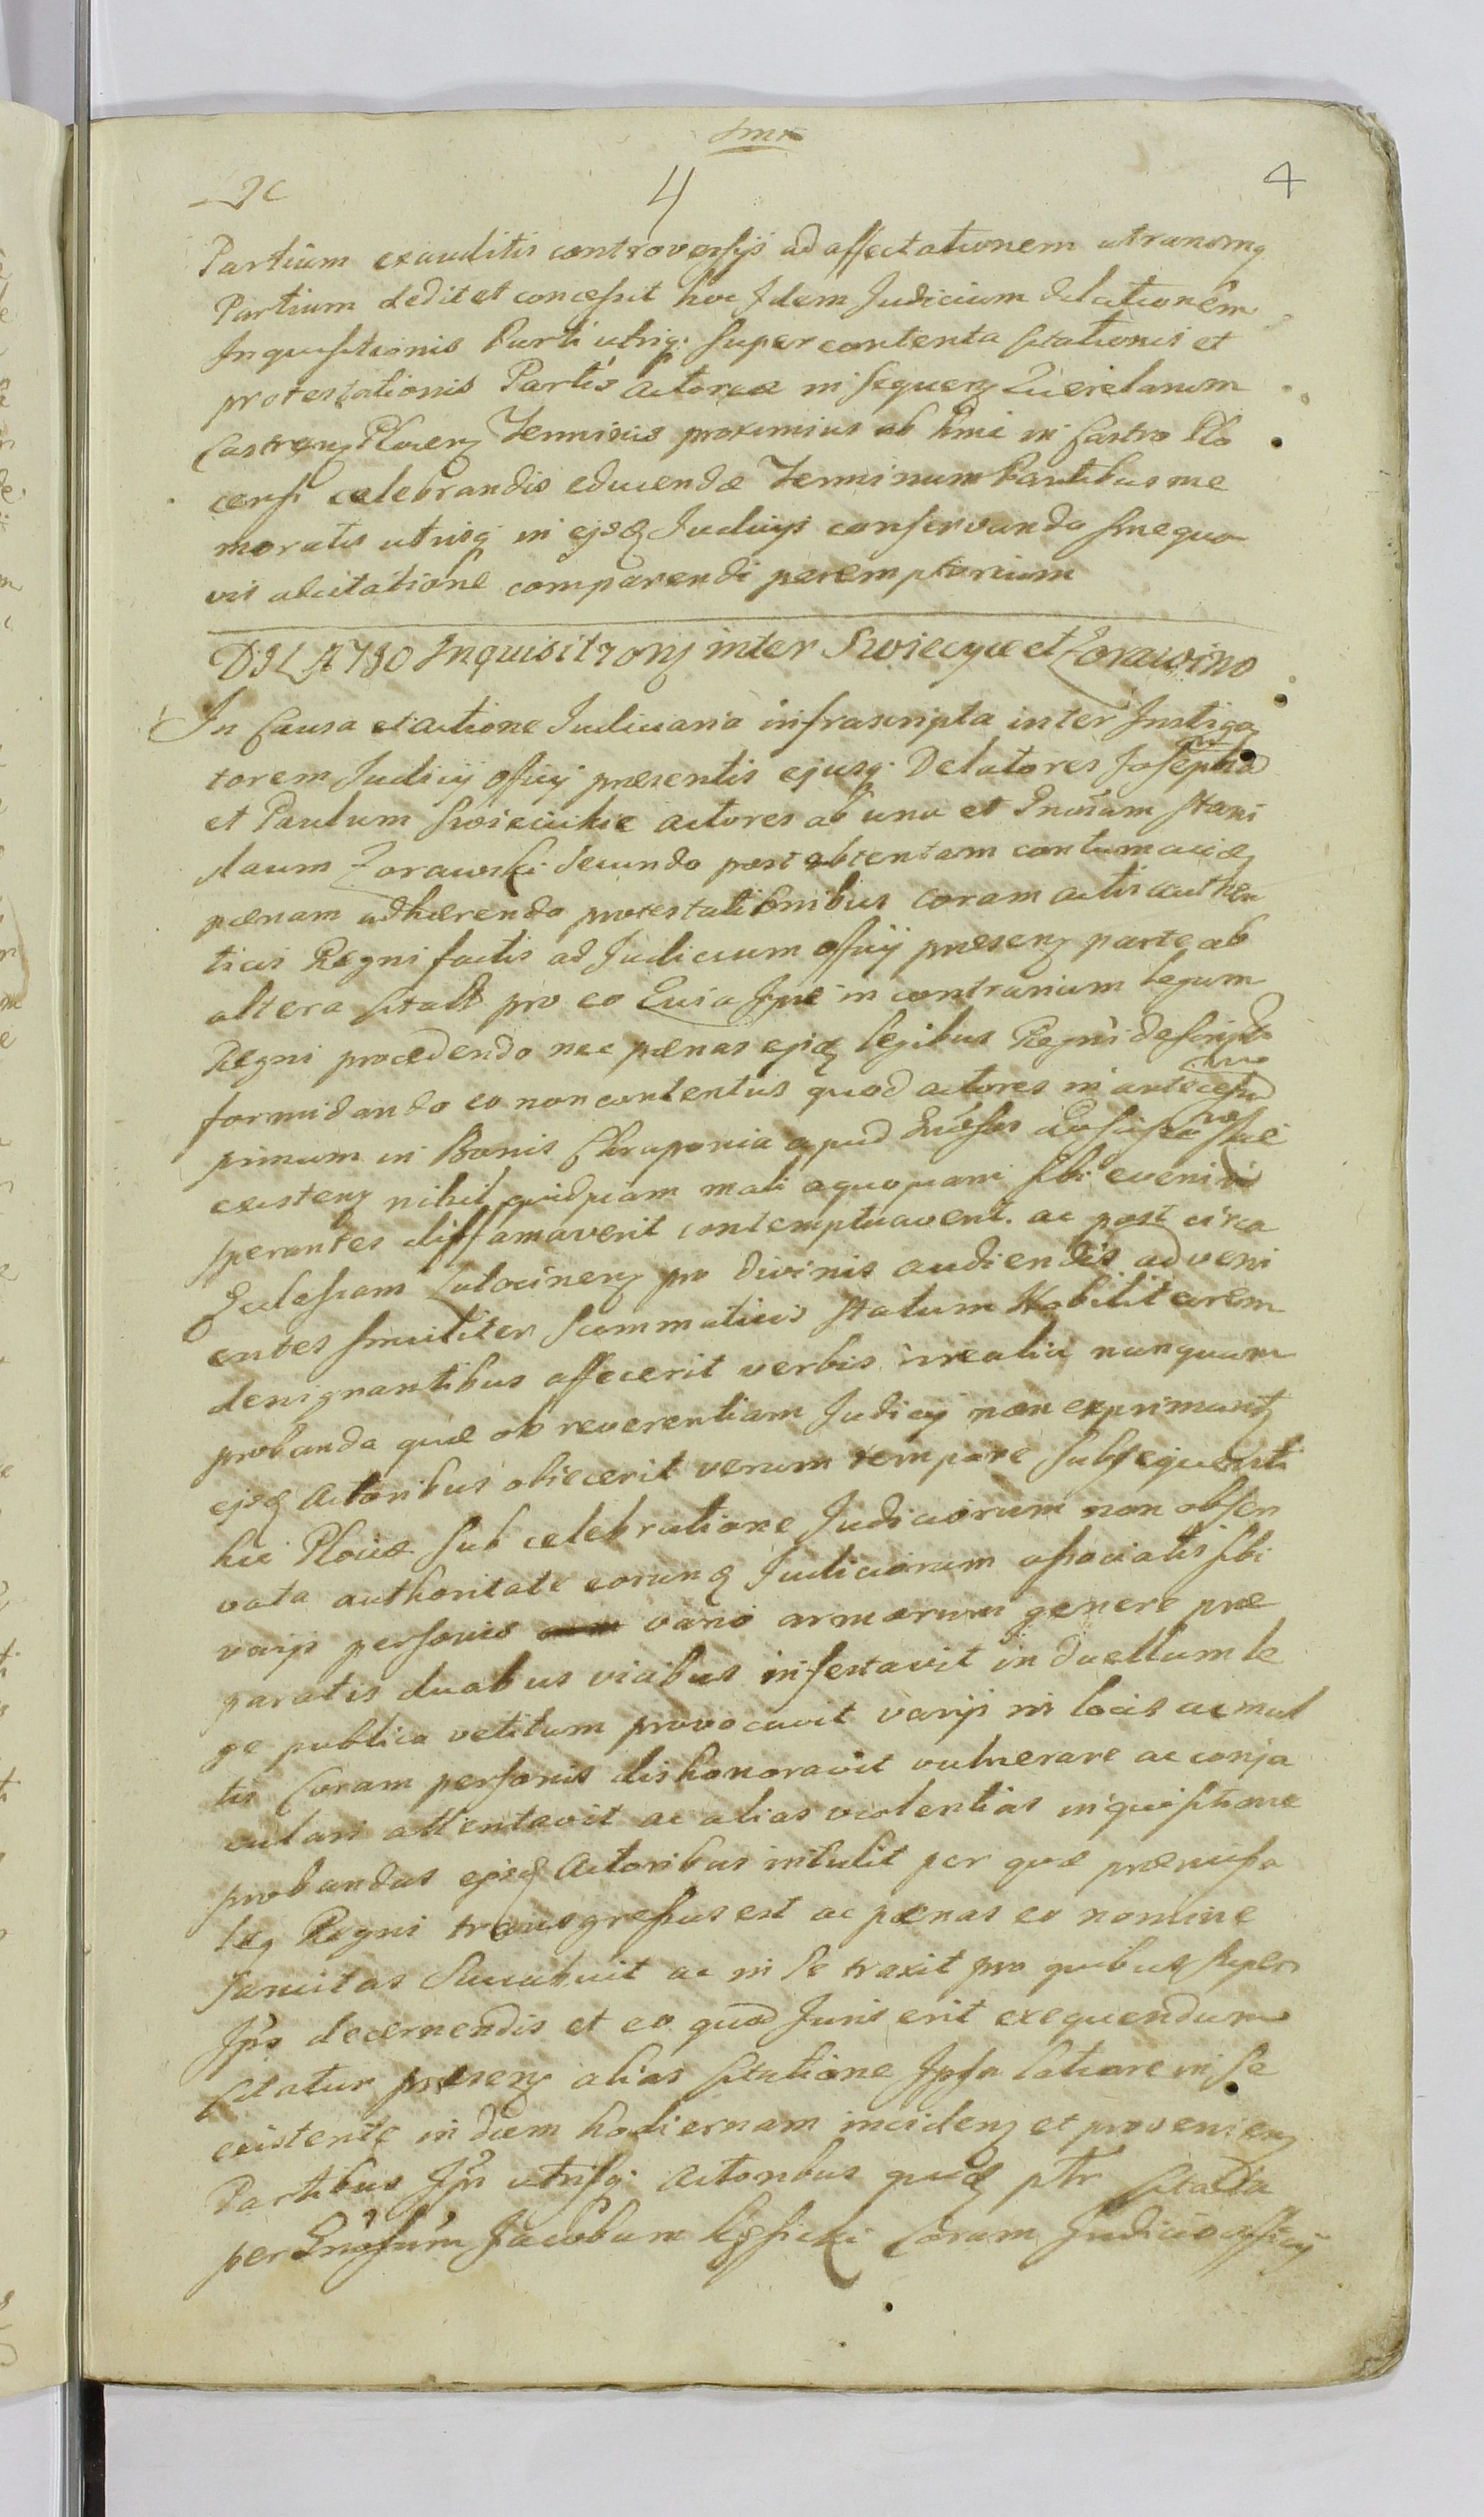 4
4
Partium exauditis controversijs ad affectationem utrarumq
Partium dedit et concessit hoc Idem Judicium dilationem
Inquisitionis Parti utriq super contenta Citationis et
protestationis Partis actoreae in sequenz Querelarum
Castrenz Plocenz Terminis proximius ab hinc in Castro Plo
censi celebrandis educendae Terminum Partibus me
moratis utrisq in ejsd Judicijs conservando sine quo
vis adcitatione comparendi peremptorium
DILATIO Inquisitionis inter Swiecqie et Zorawino
In Causa et actione Judiciaria infrascripta inter Instiga
torem Judicij officij praesentis ejusq Delatores Josephum
et Paulum Swiecickie actores ab una et Gnosum Stani
slaum Zorawski secundo post obtentam contumaciae
paenam adhaerendo protestationibus coram actis authen
ticis Regni factis ad Judicium officij praesenz parte ab
altera Citatt pro eo Quia Ipse in contrarium legum
Regni procedendo nec paenas ejsd legibus Regni descriptas
formidando eo non contentus quod actores in antecessum
primum in Bonis Chraponia apud Gnosos
existenz nihil quidpiam mali a quopiam sibi eveniri
sperantes diffamaverit contemptuaverit ac post circa
Ecclesiam Lutocinenz pro divinis audiendis adveni
entes similiter scommaticis statum Nobilitarem
denigrantibus affecerit verbis irrealia nunquam
probanda quae ob reverentiam Judicij non exprimuntz
ejsd Actoribus obiecerit verum tempore subsequenti
hic Plociae sub celebratione Judiciorum non obser
vata authoritate eorund Judiciorum associatis sibi
varijs personis vario armorum genere prae
paratis duabus viabus infestavit in duellum le
ge publica vetitum provocavit varijs in locis ac mul
tis Coram personis dishonoravit vulnerare ac conja
culari attentavit ac alias violentias inquisitione
probandas ejsd Actoribus intulit per quae praemissa
leg Regni transgressus est ac paenas eo nomine
sancitas succubuit ac in se traxit pro quibus super
Ipso decernendis et eo quod Juris erit exequendum
Citatur praesenz alias Citatione Ipsa latiore in se
existente in diem hodiernam incidenz et provenienz
Partibus Ipis utrisq Actoribus quid ptr Citata
per Gnosum Jacobum Coram Judicio officij